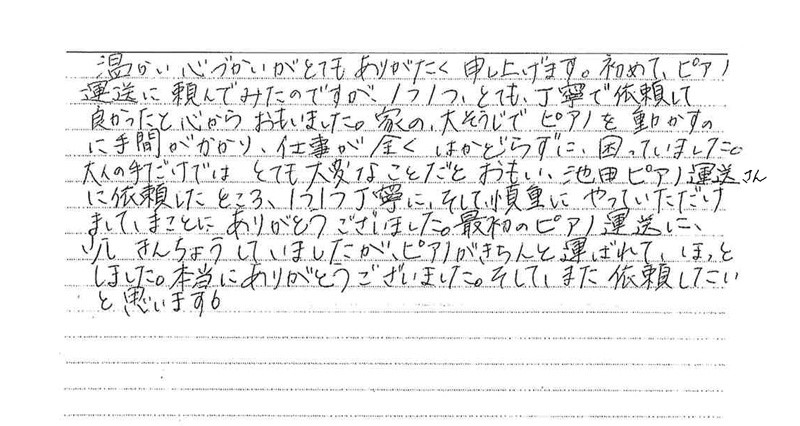 温かい心づかいがとてもありがたく申し上げます。初めて、ピアノ
運送に頼んでみたのですが、1つ1つ、とても、丁寧で依頼して
良かったと心からおもいました。家の、大そうじでピアノを動かすの
に手間がかかり、仕事が全くはかどらずに、困っていました。
大人の手だけではとても大変なことだとおもい、池田ピアノ運送さん
に依頼したところ、1つ1つ丁寧に、そして慎重にやっていただけ
まして、まことにありがとうございました。最初のピアノ運送に、
少しきんちょうしていましたが、ピアノがきちんと運ばれて、ほっと
しました。本当にありがとうございました。そして、また依頼したい
と思います。